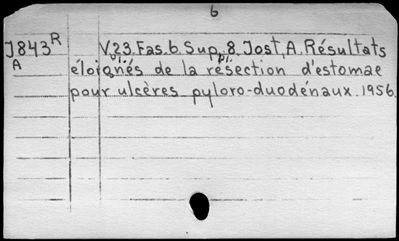 6
J843R V.23.Fas.6.Sup.8.Jost,A.Résultats
A éloignés de la résection d'estomac
pour ulcères pyloro-duodénaux.1956.